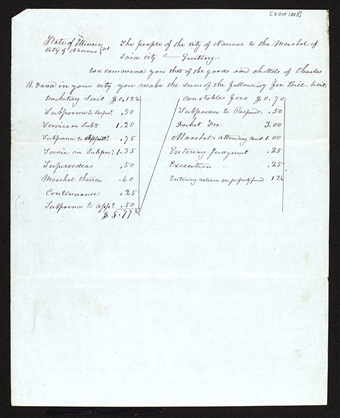 State of Illinois
City of Nauvoo
The people of the city of Nauvoo to the Marshal of
Said city Greeting.
we command you that of the goods and chattels of Charles
R. Dana in your city you make the sum of the following fee Bill
Docketing Suit $0.12½
Subpoena to .50
Service on Subp 1.20
Subpoena to .75
Service on Subpoe 1.35
Supersedeas .50
Marshal .60
Continuance .25
Subpoena to appt. .50
$5.77½
Constables fees $0.70
Subpoena to Respond. .50
Docket Fee 3.00
Marshals attending court 1.00
Entering Judgment .25
Execution .25
Entering return no property found 12½